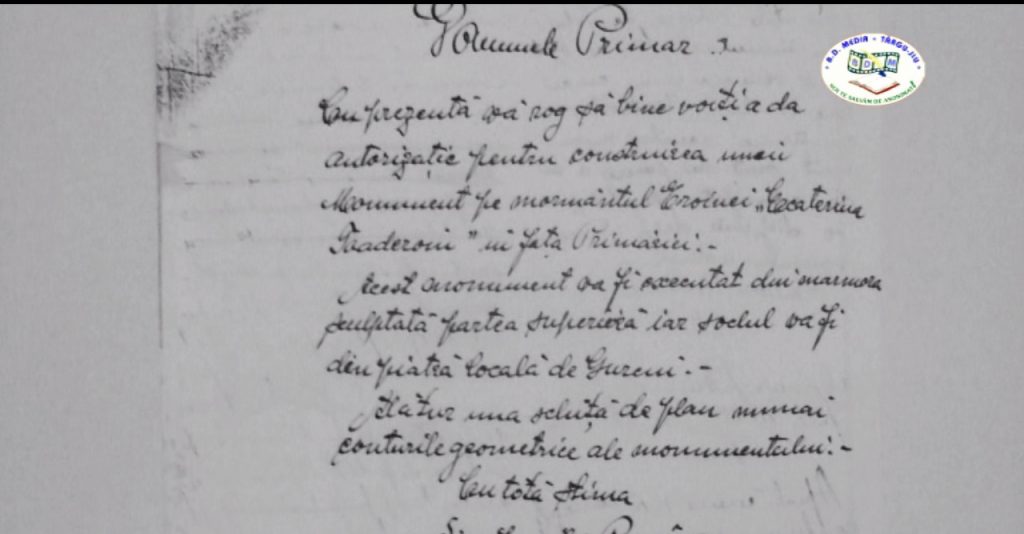 Domnule Primar
B.D. MEDIA - TÂRGU-JIU
B D M
NOI TE SALVĂM DE ANONIMAT!
Cu prezentă vă rog să bine voiți a da
autorizație pentru construirea unui
Monument pe mormântul Eroinei „Ecaterina
Teodoroiu” in fața Primăriei.-
Acest monument va fi executat din marmora
sculptată partea superioră iar soclul va fi
din piatră locală de Gureni.-
Alătur una schiță de plan numai
conturile geometrice ale monumentului.-
Cu totă stima